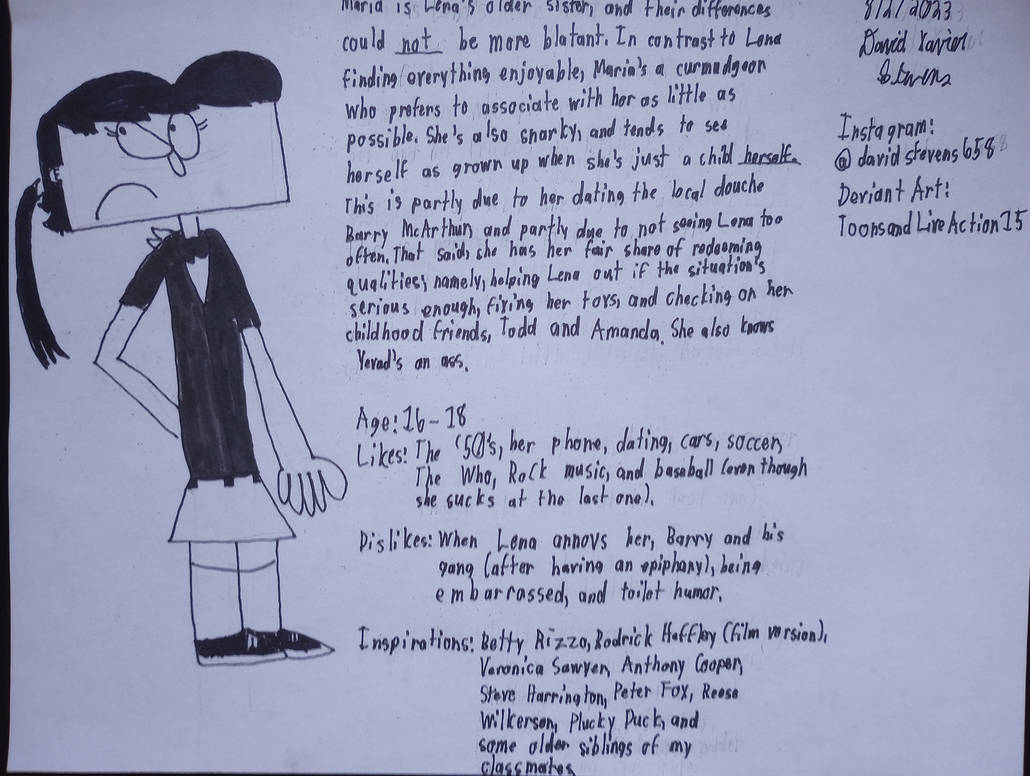 Maria is Lena's older sister, and their differences
could not be more blatant. In contrast to Lena
finding everything enjoyable, Maria's a curmudgeon
who prefers to associate with her as little as
possible. She's also snarky, and tends to see
herself as grown up when she's just a child herself.
This is partly due to her dating the local douche
Barry McArthur, and partly due to not seeing Lena too
often. That said, she has her fair share of redeeming
qualities; namely, helping Lena out if the situation's
serious enough, fixing her toys, and checking on her
childhood friends, Todd and Amanda. She also knows
Yerad's an ass.
Age: 16-18
Likes: The '50's, her phone, dating, cars, soccer,
The Who, Rock music, and baseball (even though
she sucks at the last one).
Dislikes: When Lena annoys her, Barry and his
gang (after having an epiphany), being
embarrassed, and toilet humor.
Inspirations: Betty Rizzo, Rodrick Heffley (film version),
Veronica Sawyer, Anthony Cooper,
Steve Harrington, Peter Fox, Reese
Wilkerson, Plucky Duck, and
some older siblings of my
classmates
8/2/2023
David Xavier
Stevens
Instagram:
@davidstevens658
Deviant Art:
ToonsandLiveAction15